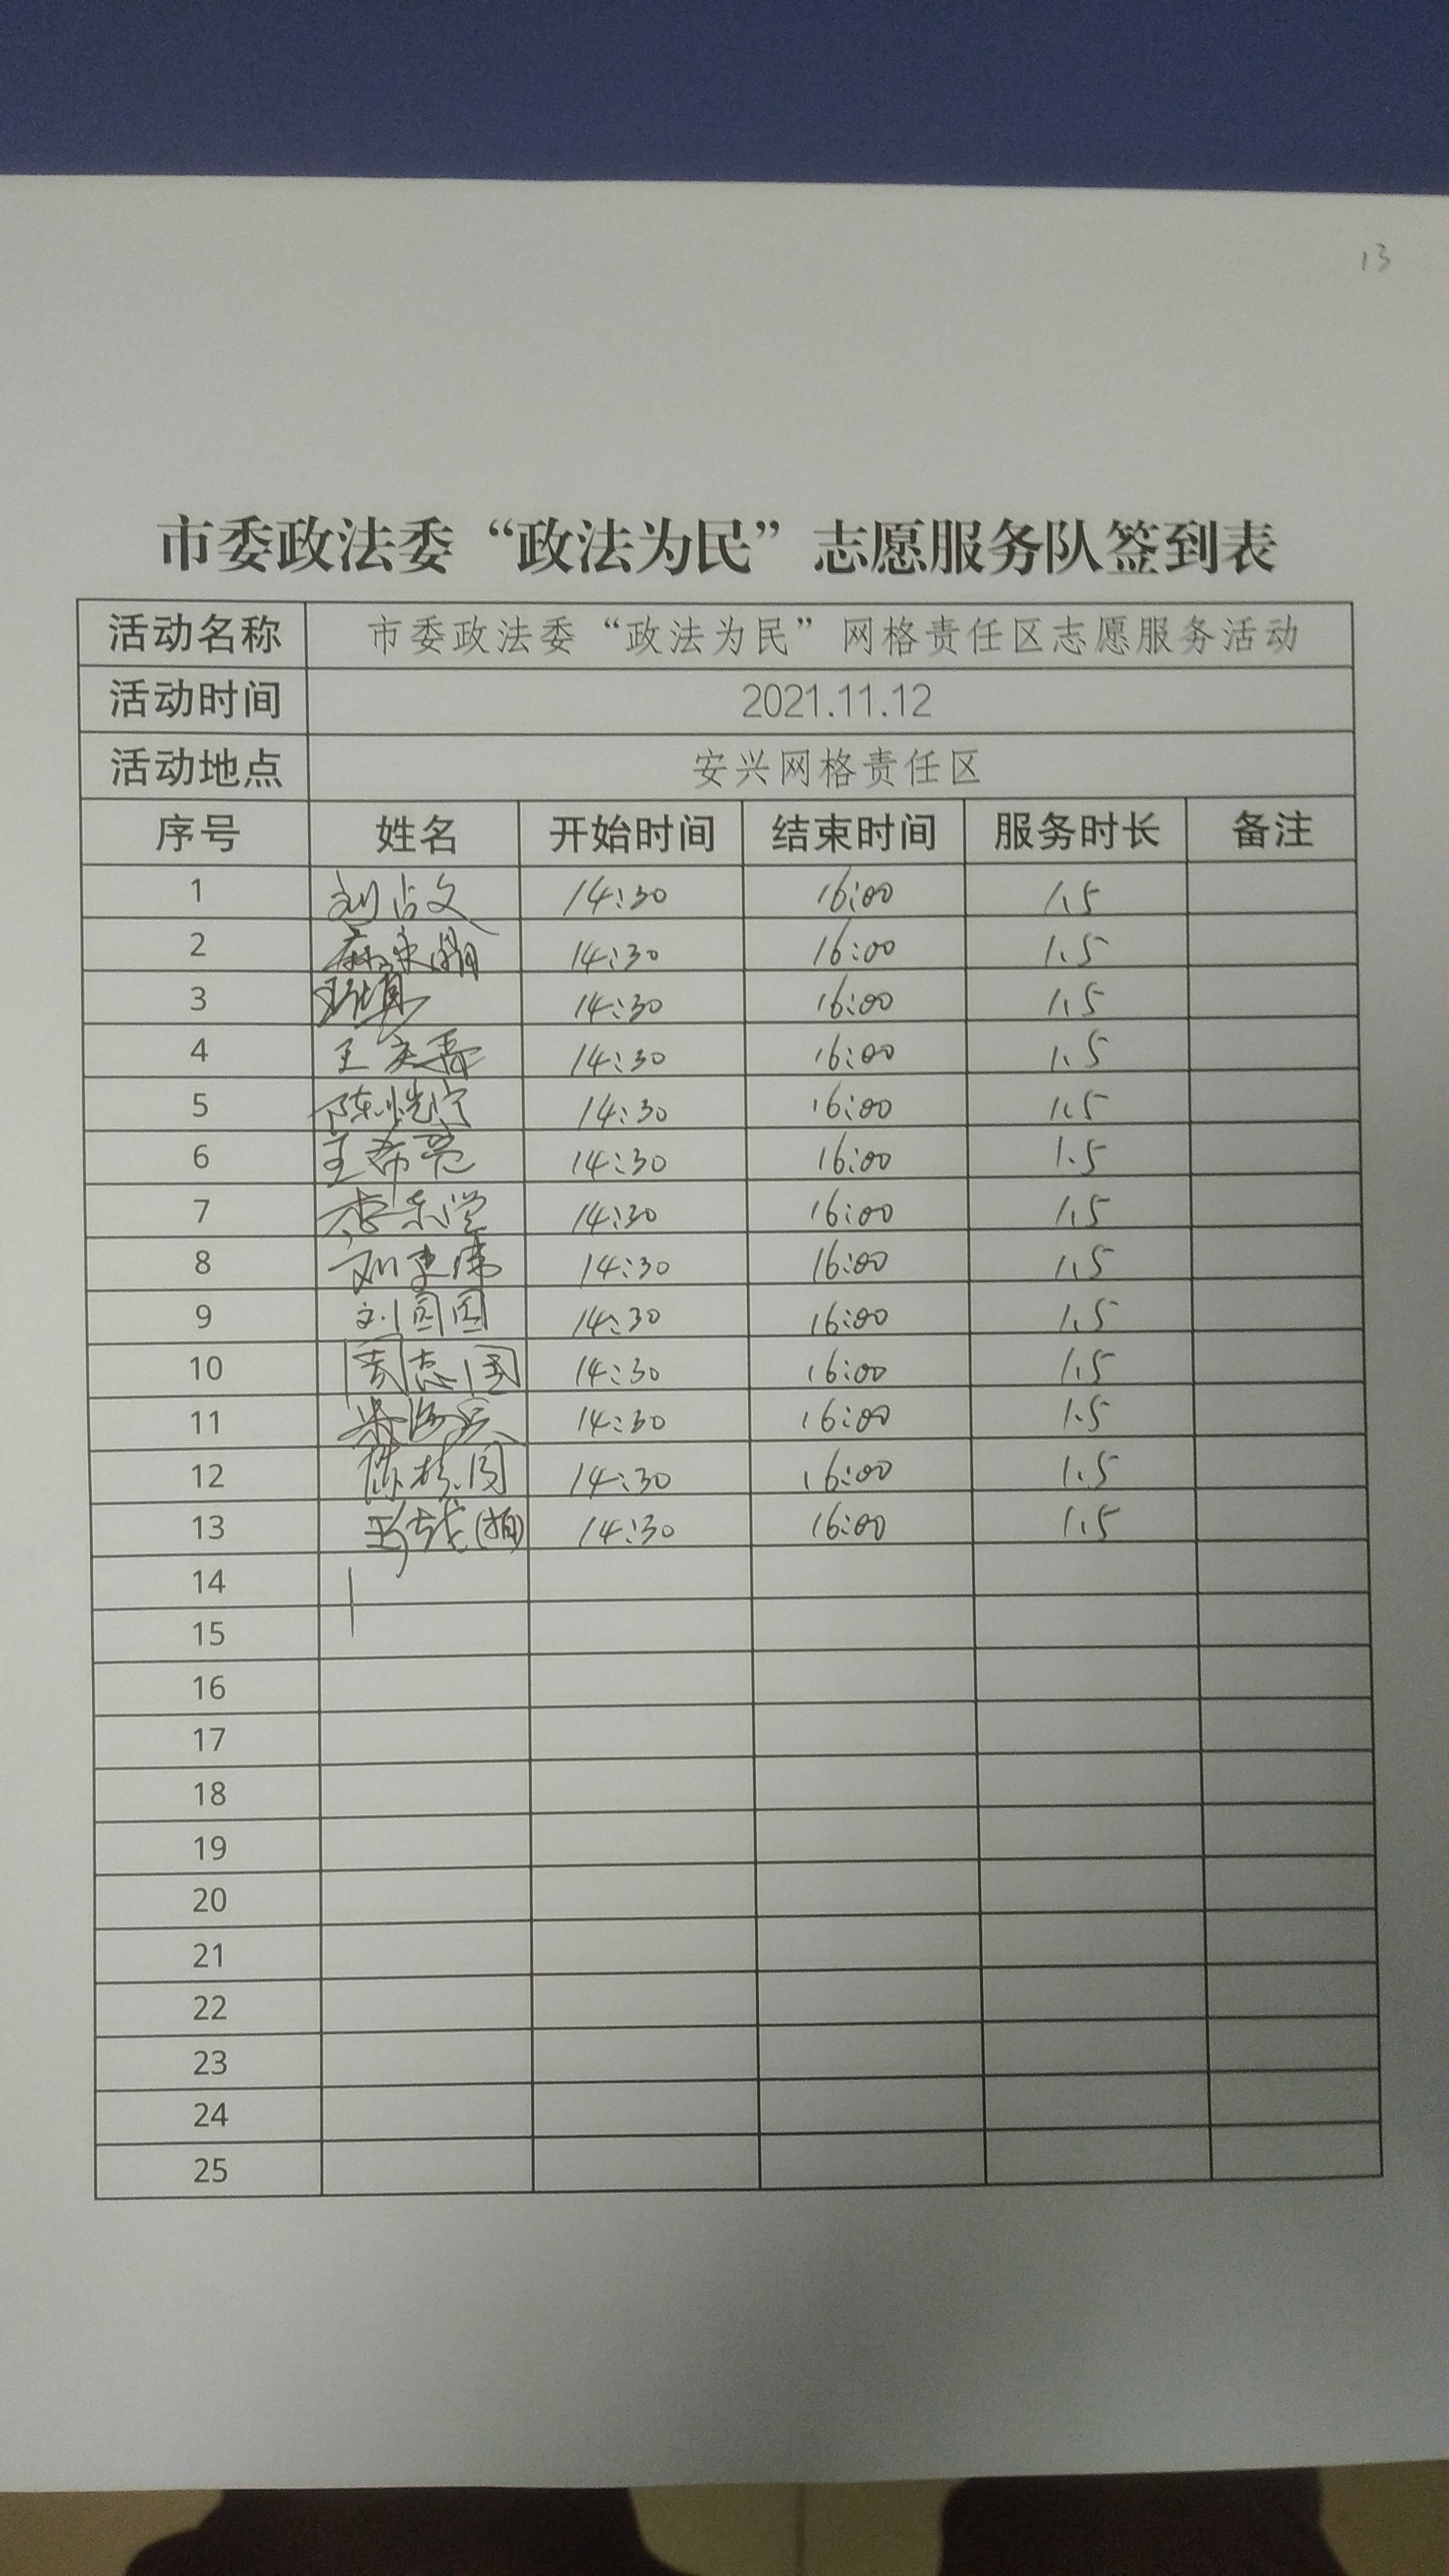 13
市委政法委“政法为民”志愿服务队签到表
活动名称 市委政法委“政法为民”网格责任区志愿服务活动
活动时间 2021.11.12
活动地点 安兴网格责任区
序号 姓名 开始时间 结束时间 服务时长 备注
1 刘占文 14:30 16:00 1.5
2 14:30 16:00 1.5
3 14:30 16:00 1.5
4 王 14:30 16:00 1.5
5 陈恺宁 14:30 16:00 1.5
6 王希亮 14:30 16:00 1.5
7 李 14:30 16:00 1.5
8 刘 14:30 16:00 1.5
9 刘园园 14:30 16:00 1.5
10 周志国 14:30 16:00 1.5
11 14:30 16:00 1.5
12 陈 14:30 16:00 1.5
13 14:30 16:00 1.5
14
15
16
17
18
19
20
21
22
23
24
25